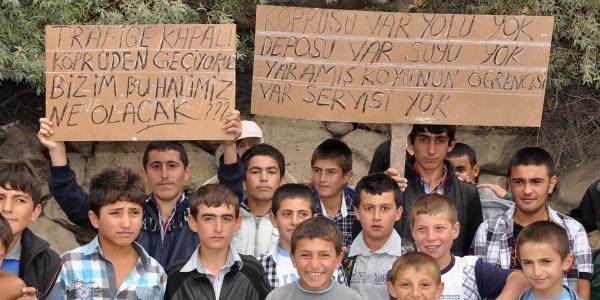 TRAFİĞE KAPALI
KÖPRÜDEN GEÇİYORUZ
BİZİM BU HALİMİZ
NE OLACAK ???
KÖPRÜSÜ VAR YOLU YOK
DEPOSU VAR SUYU YOK
YARAMIŞ KÖYÜNÜN ÖĞRENCİSİ
VAR SERVİSİ YOK